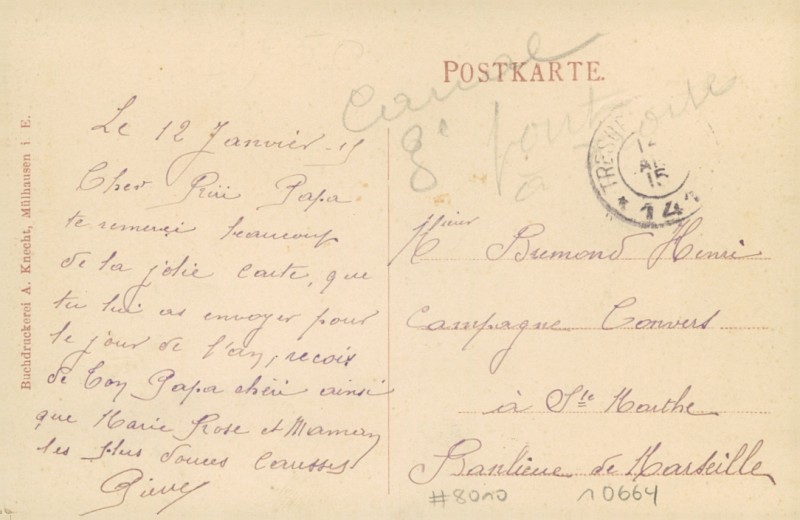 POSTKARTE.
Le 12 Janvier 15
Cher Riri Papa
te remerçi beaucoup
de la jolie carte, que
tu lui as envoyer pour
le jour de l'an, recois
de ton Papa chéri ainsi
que Marie Rose et Maman
les plus douces Caresses
Pierre
Buchdruckerei A. Knecht, Mülhausen i. E.
8e
à
TRESOR
15
* 14
Msieur Bremond Henri
Campagne Convers
à Ste Marthe
Banlieue de Marseille
#8010 10664